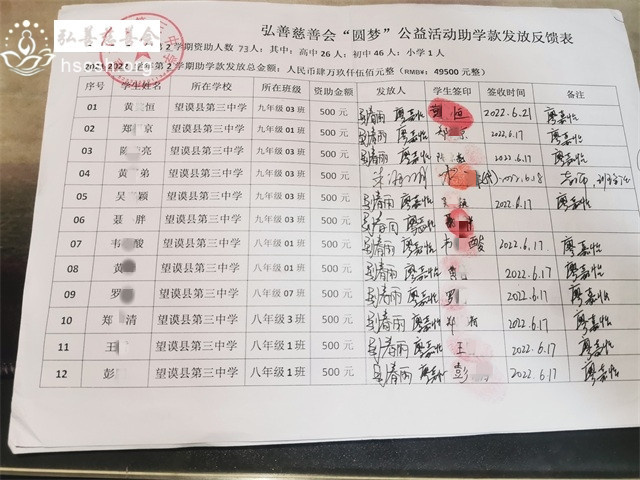 弘善慈善会
hscsh.org
弘善慈善会“圆梦”公益活动助学款发放反馈表
第2学期资助人数 73人；其中：高中26人；初中46人；小学1人
2021-2022 第2学期助学款发放总金额：人民币肆万玖仟伍佰元整（RMB¥： 49500元整）
序号 学生姓名 所在学校 所在班级 资助金额 发放人 学生签印 签收时间 备注
01 黄 恒 望谟县第三中学 九年级 03 班 500 元 廖嘉怡 恒 2022.6.21 廖嘉怡
02 郑 京 望谟县第三中学 九年级 01 班 500 元 廖嘉怡 郑 2022.6.17 廖嘉怡
03 陈 亮 望谟县第三中学 九年级 03 班 500 元 廖嘉怡 2022.6.17 廖嘉怡
04 黄 弟 望谟县第三中学 九年级 03 班 500 元
05 吴 颖 望谟县第三中学 九年级 03 班 500 元 廖嘉怡 2022.6.17 廖嘉怡
06 聂 胖 望谟县第三中学 九年级 03 班 500 元 廖嘉怡
07 韦 酸 望谟县第三中学 八年级 01 班 500 元 廖嘉怡 韦 酸 2022.6.17 廖嘉怡
08 黄 望谟县第三中学 八年级 01 班 500 元 廖嘉怡 2022.6.17 廖嘉怡
09 罗 望谟县第三中学 八年级 07 班 500 元 廖嘉怡 罗 2022.6.17 廖嘉怡
10 郑 清 望谟县第三中学 八年级 3 班 500 元 廖嘉怡 郑 2022.6.17 廖嘉怡
11 王 望谟县第三中学 八年级 1 班 500 元 廖嘉怡 王 2022.6.17 廖嘉怡
12 彭 望谟县第三中学 八年级 1 班 500 元 廖嘉怡 彭 2022.6.17 廖嘉怡